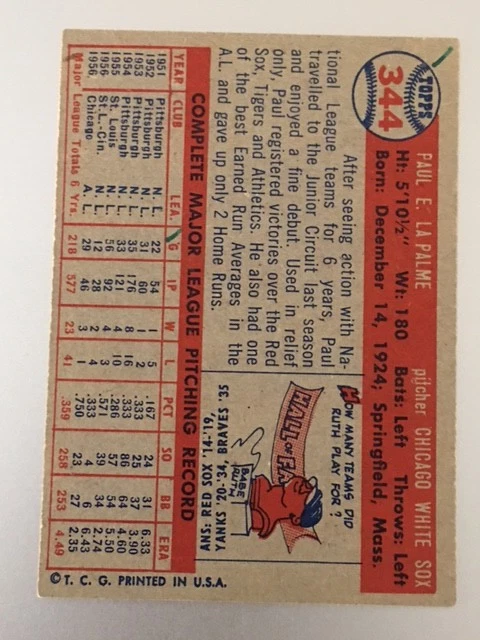 TOPPS
344
PAUL E. LA PALME pitcher CHICAGO WHITE SOX
Ht: 5'10½" Wt: 180 Bats: Left Throws: Left
Born: December 14, 1924, Springfield, Mass.
After seeing action with Na-
tional League teams for 6 years, Paul
travelled to the Junior Circuit last season
and enjoyed a fine debut. Used in relief
only, Paul registered victories over the Red
Sox, Tigers and Athletics. He also had one
of the best Earned Run Averages in the
A.L. and gave up only 2 Home Runs.
HOW MANY TEAMS DID
RUTH PLAY FOR?
HALL OF FA
BABE
RUTH
ANS: RED SOX '14-'19,
YANKS '20-'34, BRAVES '35
COMPLETE MAJOR LEAGUE PITCHING RECORD
YEAR CLUB LEA. G IP W L PCT SO BB ERA
1951 Pittsburgh N. L. 22 54 1 5 .167 24 31 6.33
1952 Pittsburgh N. L. 31 60 1 2 .333 25 37 3.90
1953 Pittsburgh N. L. 35 176 8 16 .333 86 64 4.60
1954 Pittsburgh N. L. 33 121 4 10 .286 57 54 5.50
1955 St. Louis N. L. 56 92 4 3 .571 39 34 2.75
1956 St. L.-Cin. N. L. 12 28 2 4 .333 4 6 6.43
1956 Chicago A. L. 29 46 3 1 .750 23 27 2.35
Major League Totals 6 Yrs. 218 577 23 41 .359 258 253 4.49
© T. C. G. PRINTED IN U.S.A.